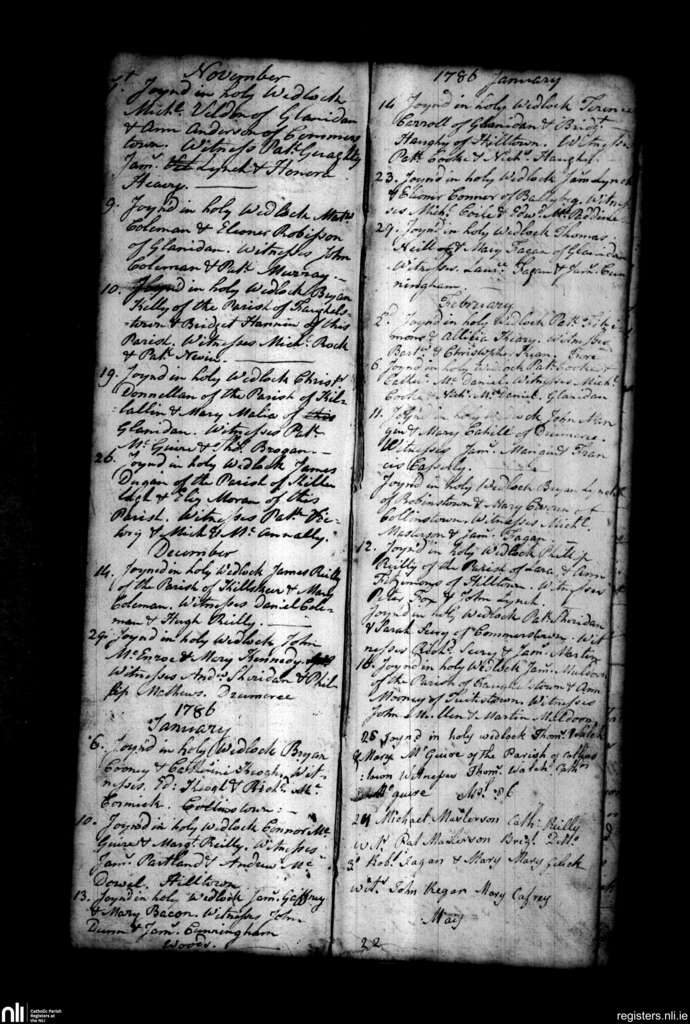 November
1st Joynd in holy Wedlock
Michl. Veldon of Glanidan
& Ann Anderson of Commers
town. Witness Patk. Geraghty
Jams. Lynch & Honora
Heavy.
9. Joynd in holy Wedlock Mattw.
Coleman & Eleoner Robisson
of Glanidan. Witnesses John
Coleman & Patk. Murray.
10. Joynd in holy Wedlock Bryan
Kelly of the Parish of Faughels-
-town & Bridget Hannin of this
Parish. Witnesses Michl. Rock
& Patk. Nevin.
19. Joynd in holy Wedlock Christr
Donnellan of the Parish of Kil-
-lallin & Mary Malia of this
Glanidan. Witnesses Patk.
Mc. Guire & Ths. Brogan.
26. Joynd in holy Wedlock James
Dugan of the Parish of Killu
lagh & Elez Moran of this
Parish. Witnesses Patk.
& Mich & Mc. Annally.
December
14. Joyned in holy Wedlock James Reilly
of the Parish of Killskeer & Mary
Coleman. Witnesses Daniel Cole-
man & Hugh Reilly.
29. Joynd in holy Wedlock John
Mc. Enroe & Mary Kennedy.
Witnesses Andw. Sheridan & Phil-
lip Mathews. Drumcree
1786
January
6. Joynd in holy Wedlock Bryan
Cooney & Catherine Keogh. Wit-
nesses. Ed: Keogh & Richd. Mc.
Cormick. Collinstown:
10. Joynd in holy Wedlock Connor Mc
Guire & Margt. Reilly. Witnesses
Jams. Partland & Andrew Mc.
Dowel. Hilltown
13. Joynd in holy Wedlock Jams. Gaffney
& Mary Bacon. Witnesses John
Dunn & Jams. Cunningham
Woods.
1786 January
14. Joynd in holy Wedlock Terence
Carroll of Glanidan & Bridgt.
Haughy of Hilltown. Witnesses
Patk. Cooke & Nichs. Haughy.
23. Joynd in holy Wedlock Jams Lynch
& Elioner Conner of Ballybeg. Witnes-
ses Michl. Coile & Edwd. Mc. Paddin
29. Joynd in holy Wedlock Thomas
Neill of & Mary Fagan of Glanidan
Witnesses. Laur. Fagan & Jams. Cun
ningham
February
2d. Joynd in holy Wedlock Patk. Fitzsi
mons & Allicia Heary. Witnesses
Bartw. & Christopher
6. Joynd in holy Wedlock Patk. Cooke &
Cathe. Mc. Daniel. Witnesses Michl.
Cooke & Mc. Daniel. Glanidan
11. Joynd in holy Wedlock John Man
gan & Mary Cahill of Drumcree.
Witnesses Jams. Mangan & Fran
cis Cassely.
Joynd in holy Wedlock Bryan Lynch
of Robinstown & Mary Curran of
Collinstown. Witnesses Michl.
Masterson & Jams. Fagan
12. Joynd in holy Wedlock Philip
Reilly of the Parish of Lara & Ann
Fitzsimons of Hilltown. Witnesses
Peter Fox & John Lynch.
Joynd in holy Wedlock Patk. Sheridan
& Sarah Seery of Commerstown. Wit
nesses Richd. Seery & Jams. Martin
18. Joynd in holy Wedlock Jams. Muldoon
of the Parish of Faughalstown & Ann
Mooney of Turbotstown. Witnesses
John Mullen & Martin Muldoon
26 Joynd in holy wedlock Thoms. Walsh
& Mary Mc Guire of the Parish of
town Witnesses Thoms. Walsh Cathn
Mc guire
24 Michael Masterson Cathe. Reilly
Wits Pat Masterson Brigt. Ditto
3d Robt. Fagan & Mary
Wits. John Regan Mary Cafrey
May
22
nli
Catholic Parish
Registers at
the NLI
registers.nli.ie